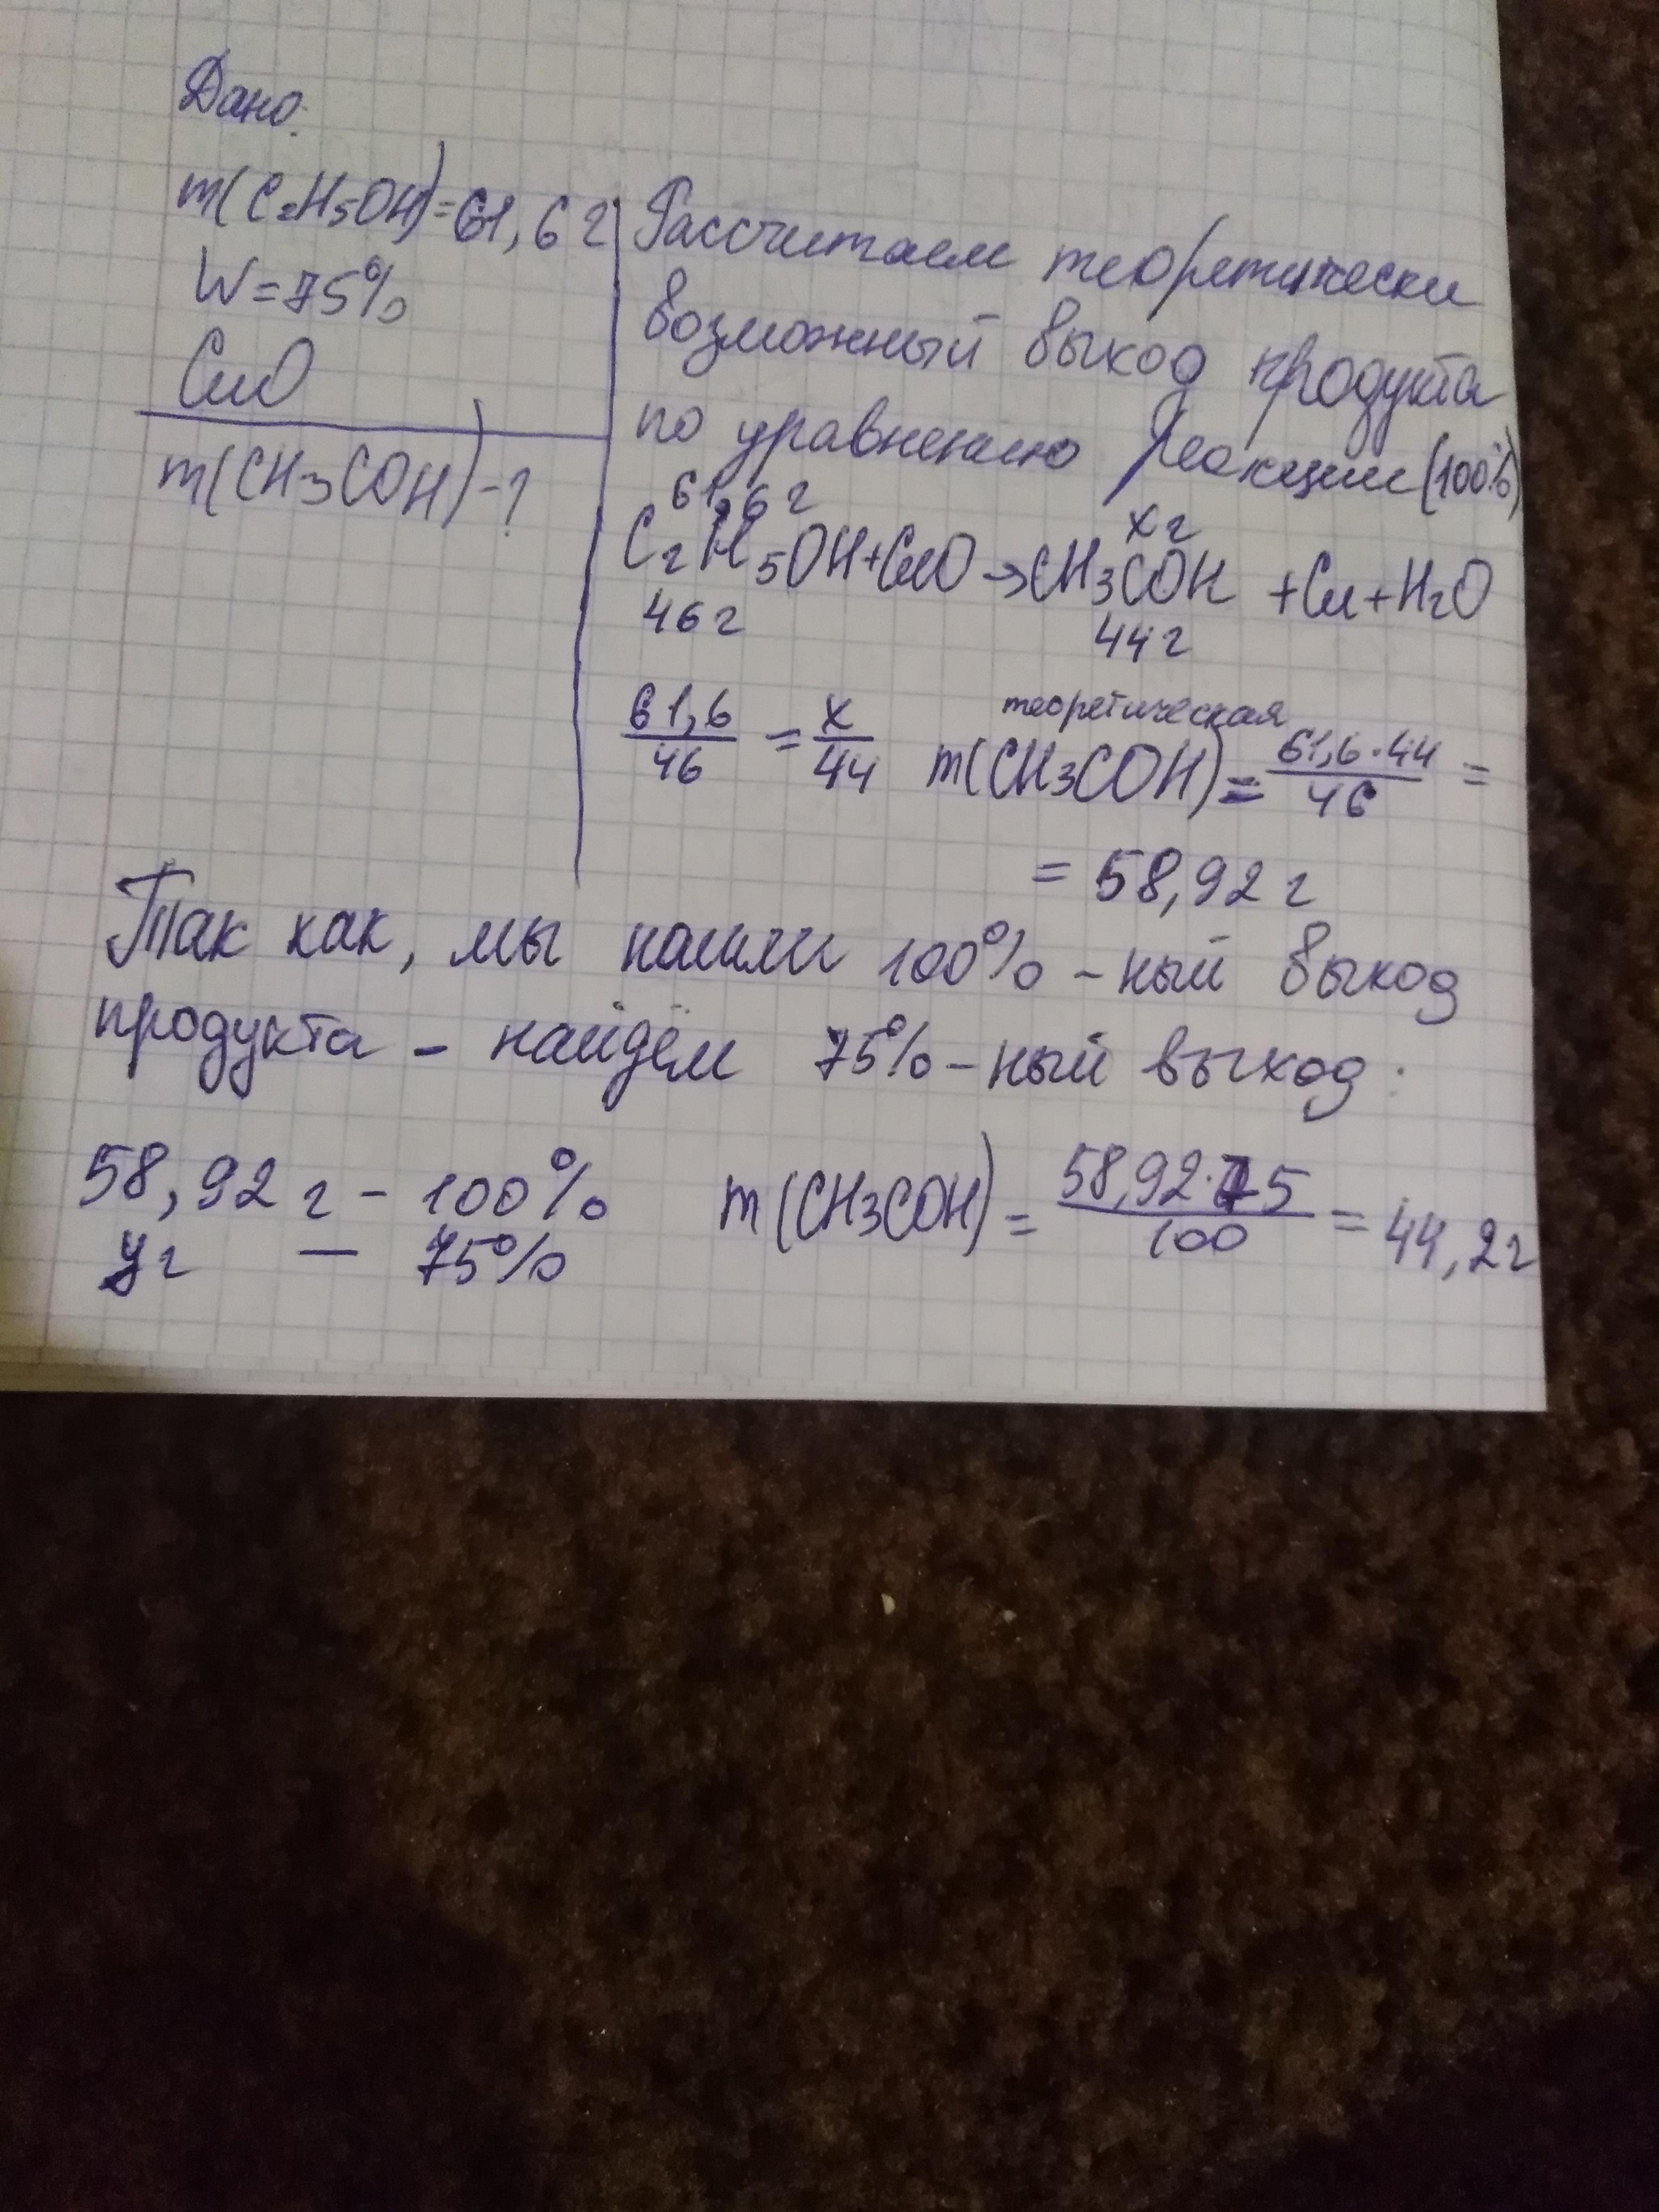 Дано:
m(C₂H₅OH)=61,6 г
W=75%
CuO
m(CH3COH)-?
Рассчитаем теоретически
возможный выход продукта
по уравнению реакции (100%)
61,6 г xг
C₂H₅OH+CuO→CH3COH +Cu+H₂O
46г 44г
теоретическая
61,6/46 = x/44 m(CH3COH)= 61,6·44/46 =
= 58,92 г
Так как, мы нашли 100%-ный выход
продукта - найдём 75%-ный выход:
58,92 г - 100% m(CH3COH) = 58,92·75/100 = 44,2г
yг — 75%